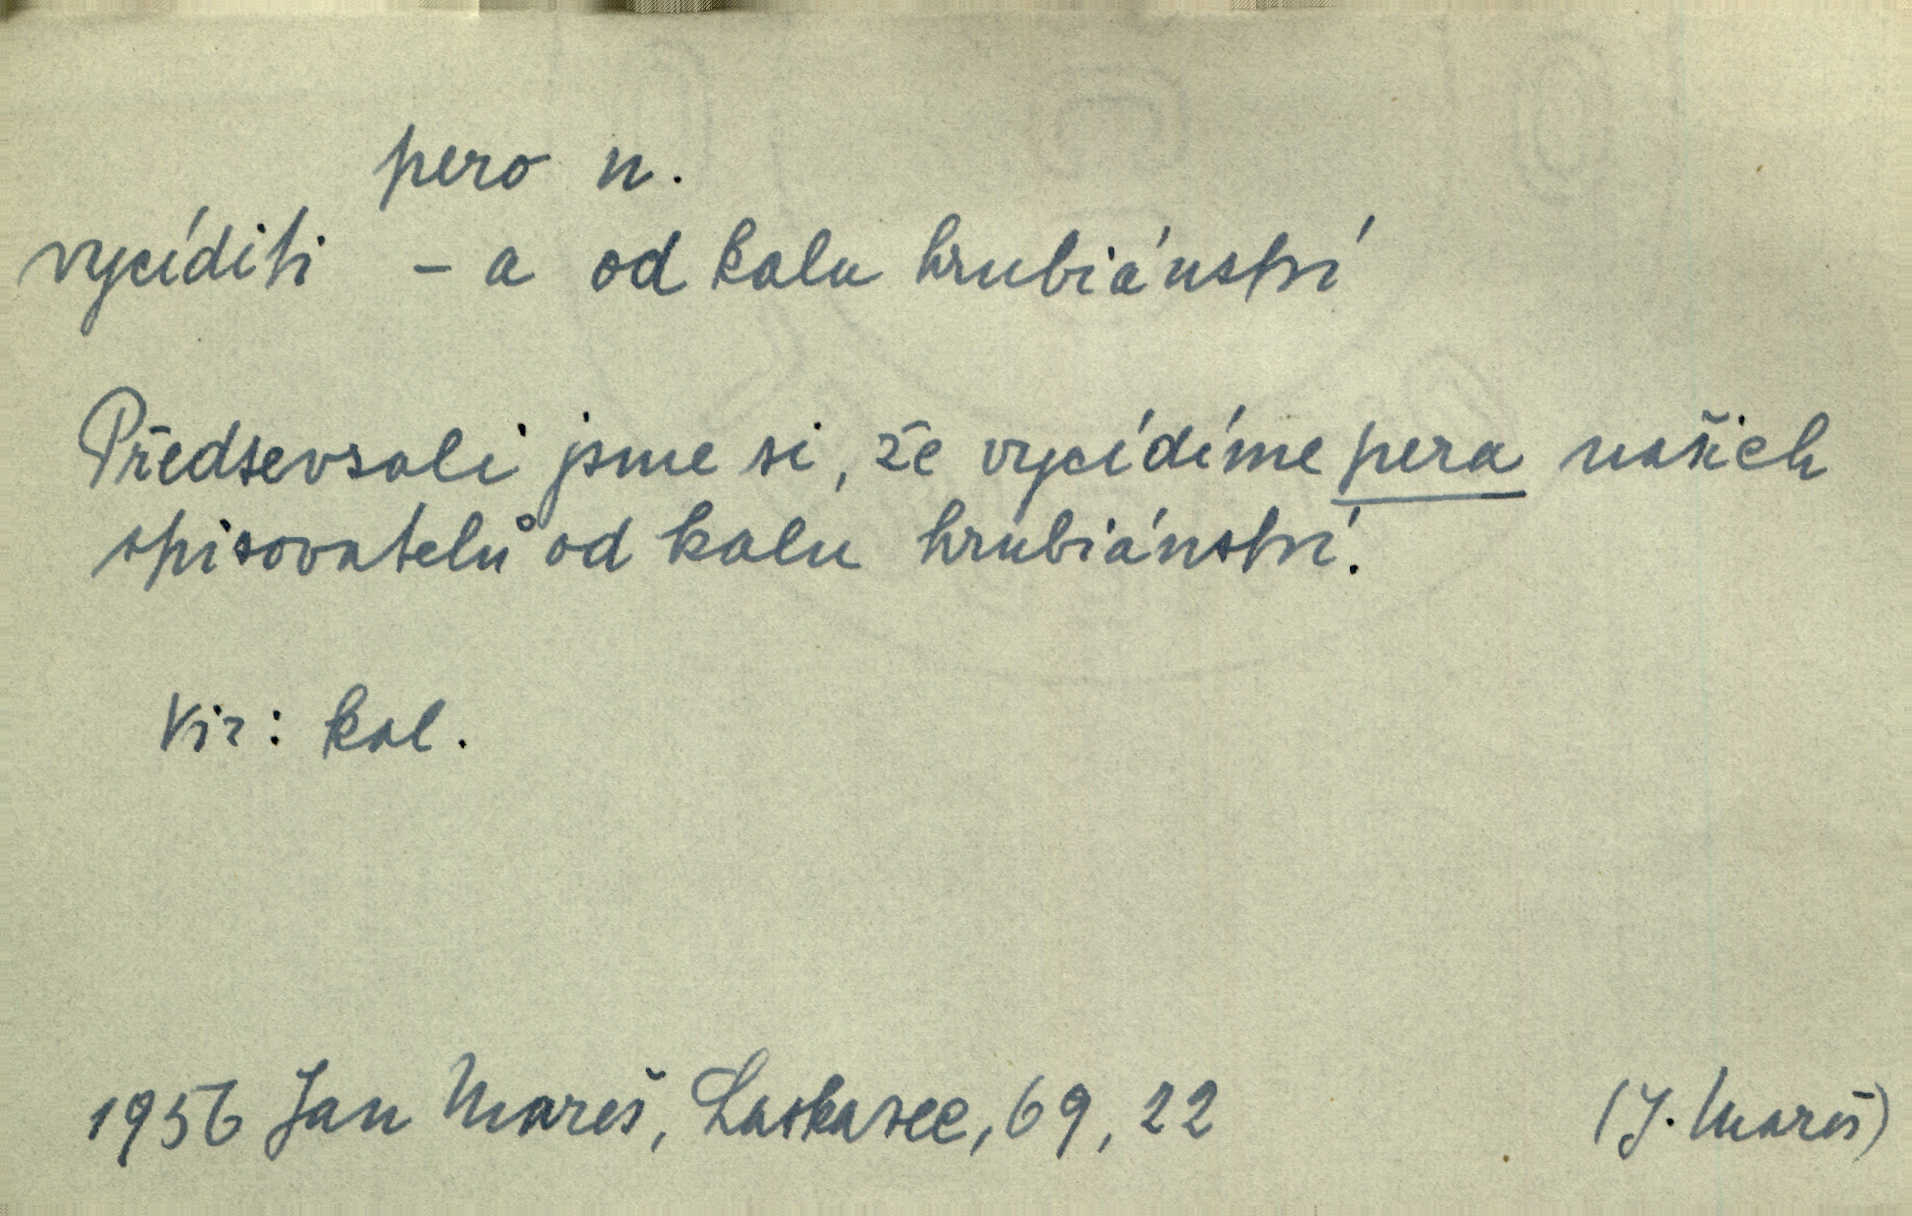 pero n.
vycíditi – a od kalu hrubiánství
Předsevzali jsme si, že vycídíme pera našich
spisovatelů od kalu hrubiánství.
Viz: kal.
1956 Jan Mareš, 69, 22 (J. Mareš)